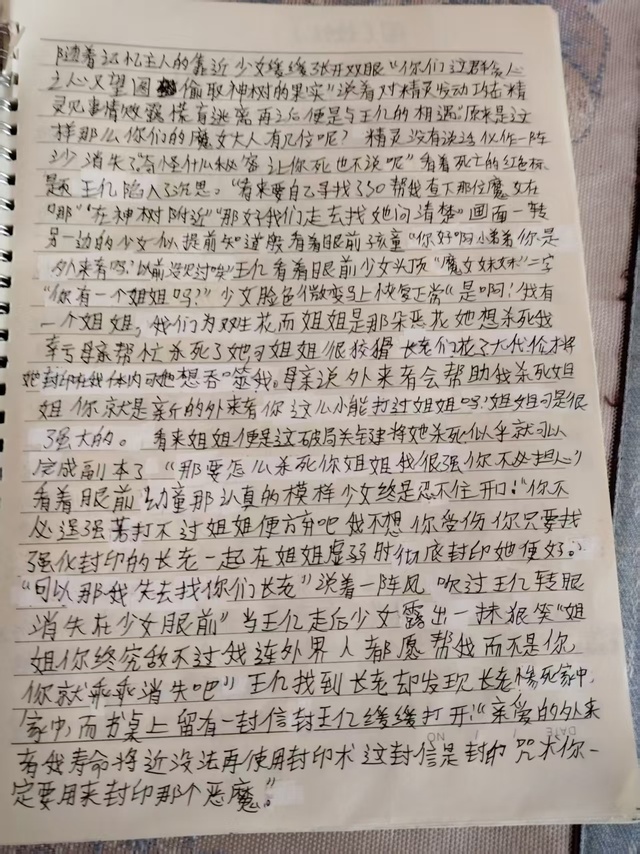 随着记忆主人的靠近少女缓缓张开双眼“你们这群贪人
之心又望图偷取神树的果实”说着对精灵发动攻击精
灵见事情败露慌忙逃离再之后便是与王亿的相遇“原来是这
样那么你们的魔女大人有几位呢？ 精灵没有说话化作一阵
沙消失了“奇怪什么秘密让你死也不说呢”看着死亡的红色标
题王亿陷入了沉思。“看来要自己寻找了50帮我查下那位魔女在
“哪”“在神树附近”“那好我们走去找她问清楚”画面一转
另一边的少女似提前知道般看着眼前孩童“你好啊小弟弟你是
外来者吗？以前没见过唉”王亿看着眼前少女头顶“魔女妹妹”二字
“你有一个姐姐吗？”少女脸色微变马上恢复正常“是啊！我有
一个姐姐，我们为双生花而姐姐是那朵恶花她想杀死我
幸亏母亲帮忙杀死了她可姐姐很狡猾 长老们花了大代价才将
她封印在我体内可她想吞噬我。母亲说外来者会帮助我杀死姐
姐你就是亲近的外来者你这么小能打过姐姐吗？姐姐可是很
强大的。 看来姐姐便是这破局关键将她杀死似乎就可以
完成副本了“那要怎么杀死你姐姐我很强你不必担心”
看着眼前幼童那认真的模样少女终是忍不住开口：“你不
必逞强若打不过姐姐便放弃吧 我不想你受伤你只要找
强化封印的长老一起在姐姐虚弱时彻底封印她便好。
“可以那我先去找你们长老”说着一阵风 吹过王亿转眼
消失在少女眼前”当王亿走后少女露出一抹狠笑“姐
姐你终究敌不过我连外界人都愿帮我而不是你，
你就乖乖消失吧”王亿找到长老却发现长老惨死家中，
家中，而书桌上留有一封信封王亿缓缓打开：“亲爱的外来
者我寿命将近没法再使用封印术 这封信是封印 咒术你一
定要用来封印那个恶魔。”
DATE
NO